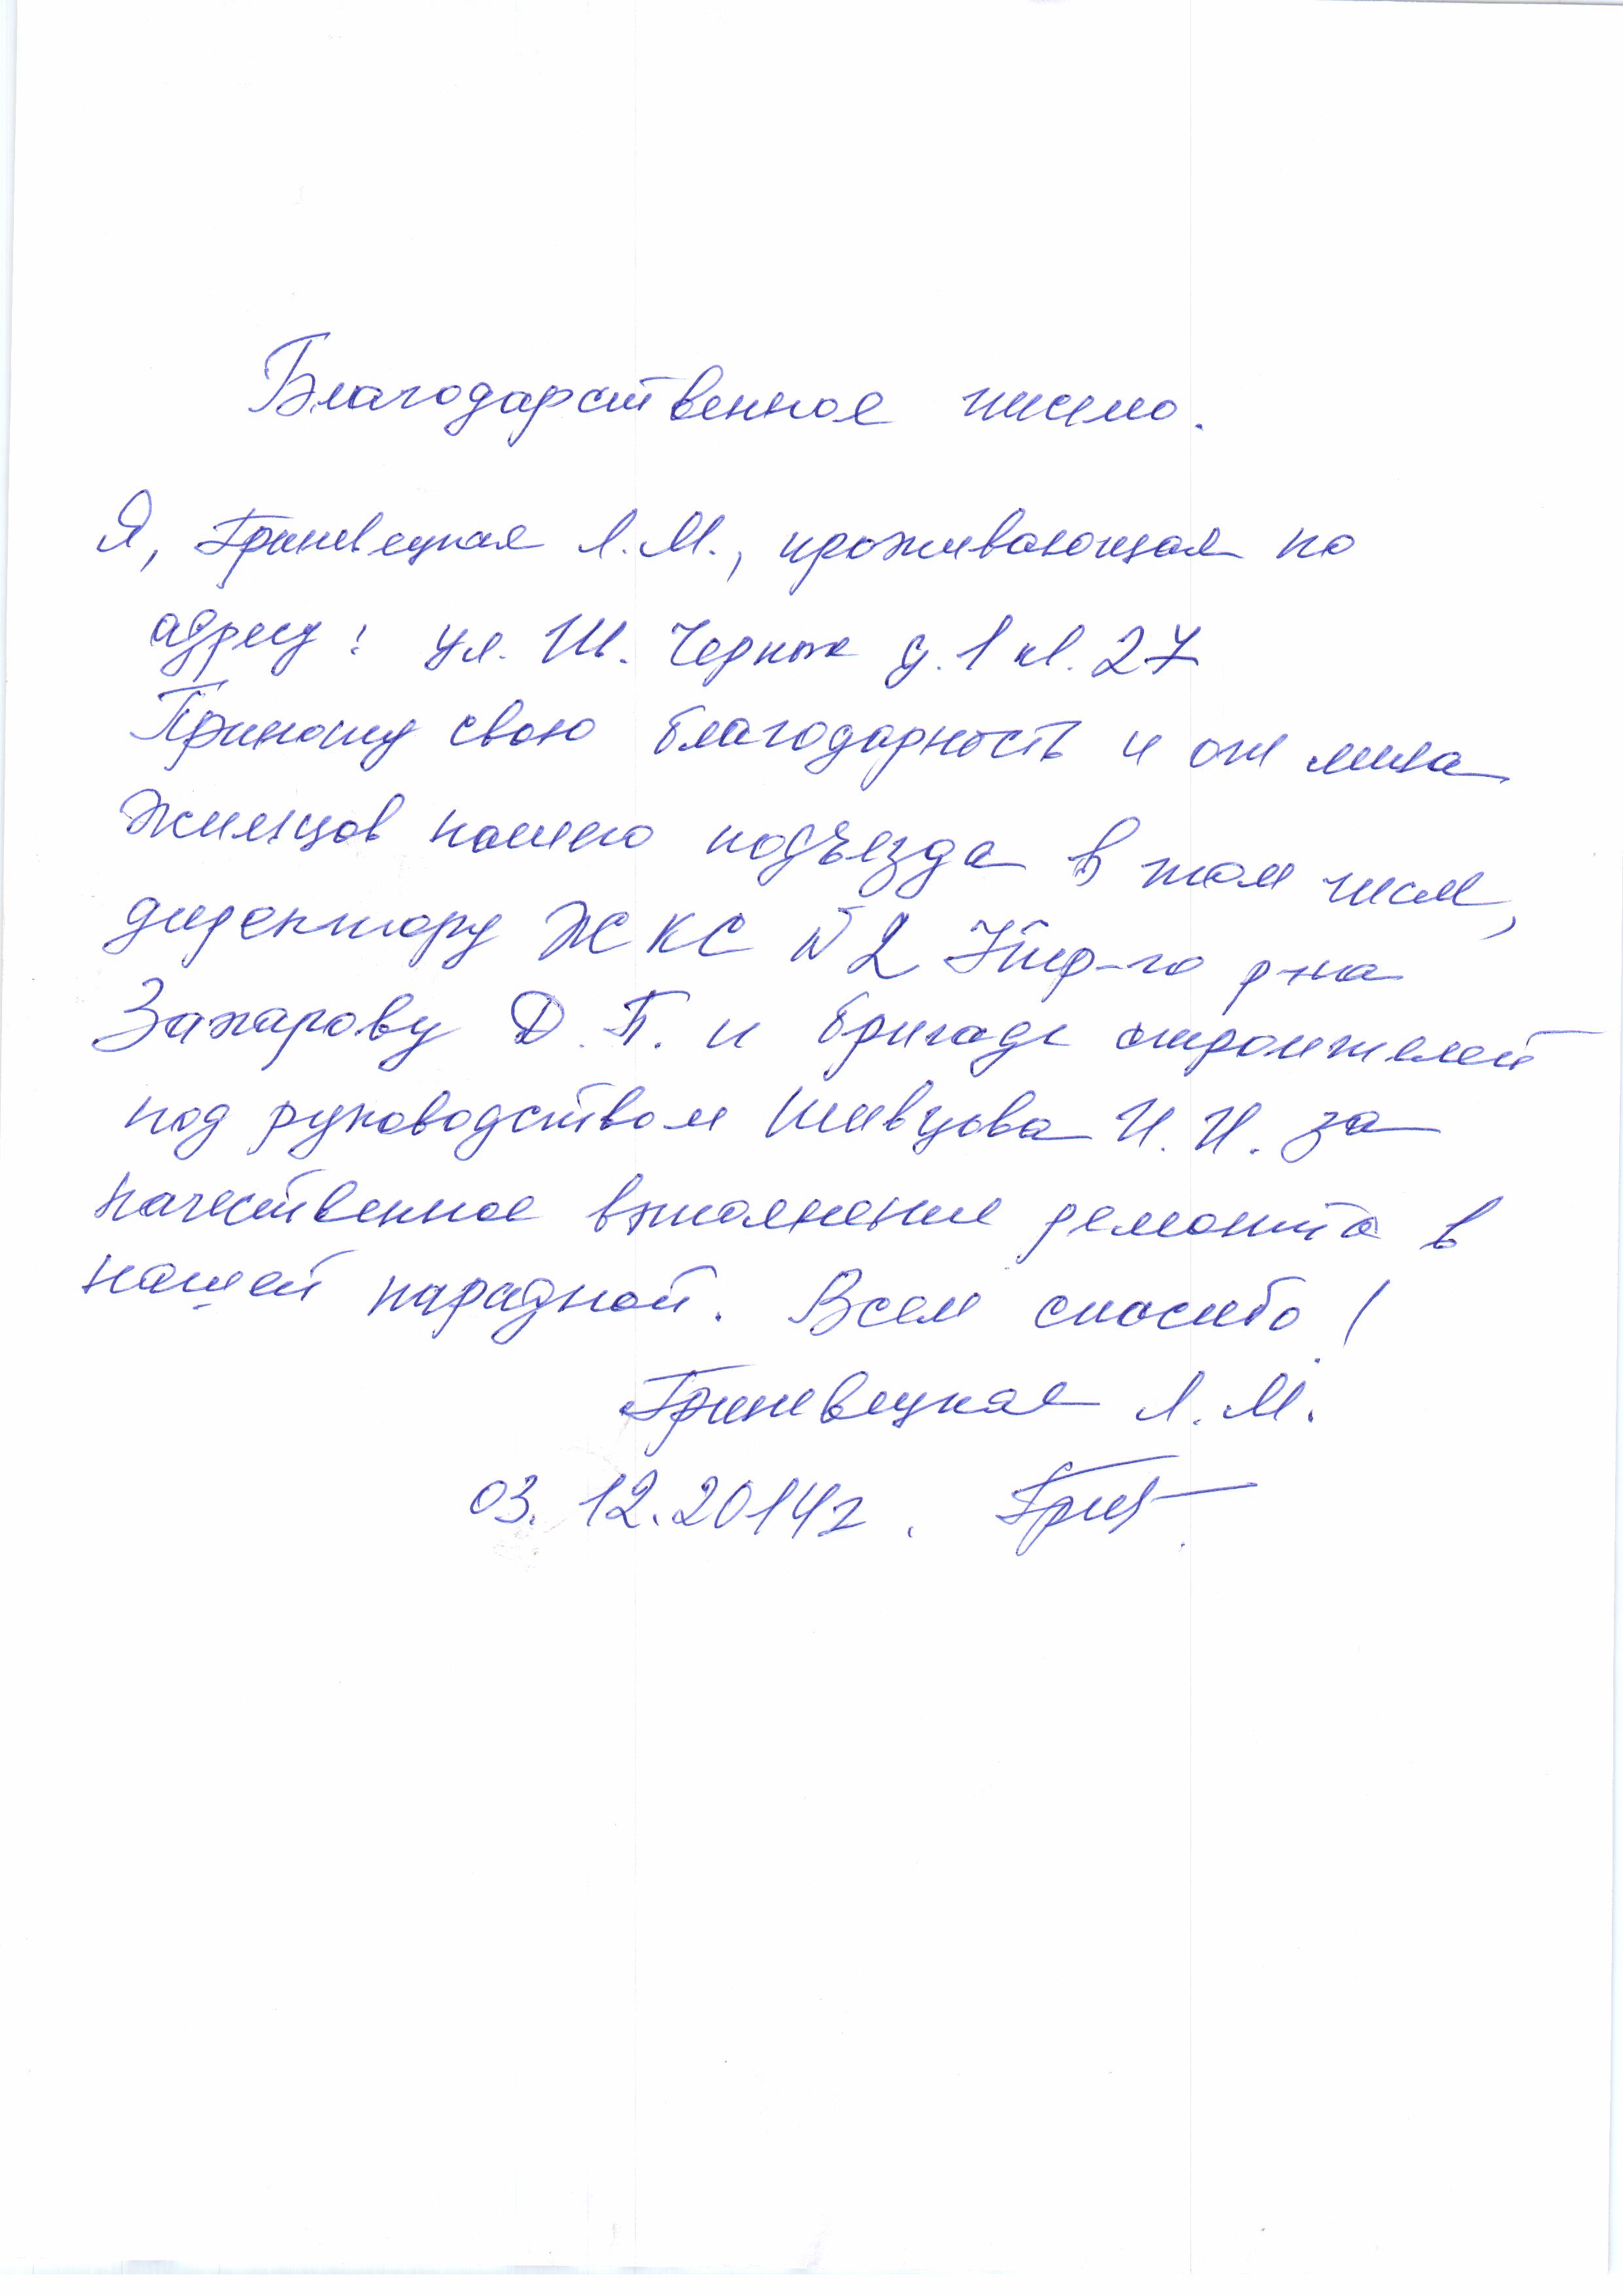 Благодарственное письмо.
Я, Гриневецкая Л.М., проживающая по
адресу: ул. Ш. Черных д. 1 кв. 27
Приношу свою благодарность и от лица
жильцов нашего подъезда в том числе,
директору ЖКС №2 р-на
Захарову Д.П. и бригаде строителей
под руководством Шевцова И.И. за
качественное выполнение ремонта в
нашей парадной. Всем спасибо!
Гриневецкая Л.М.
03.12.2014г.